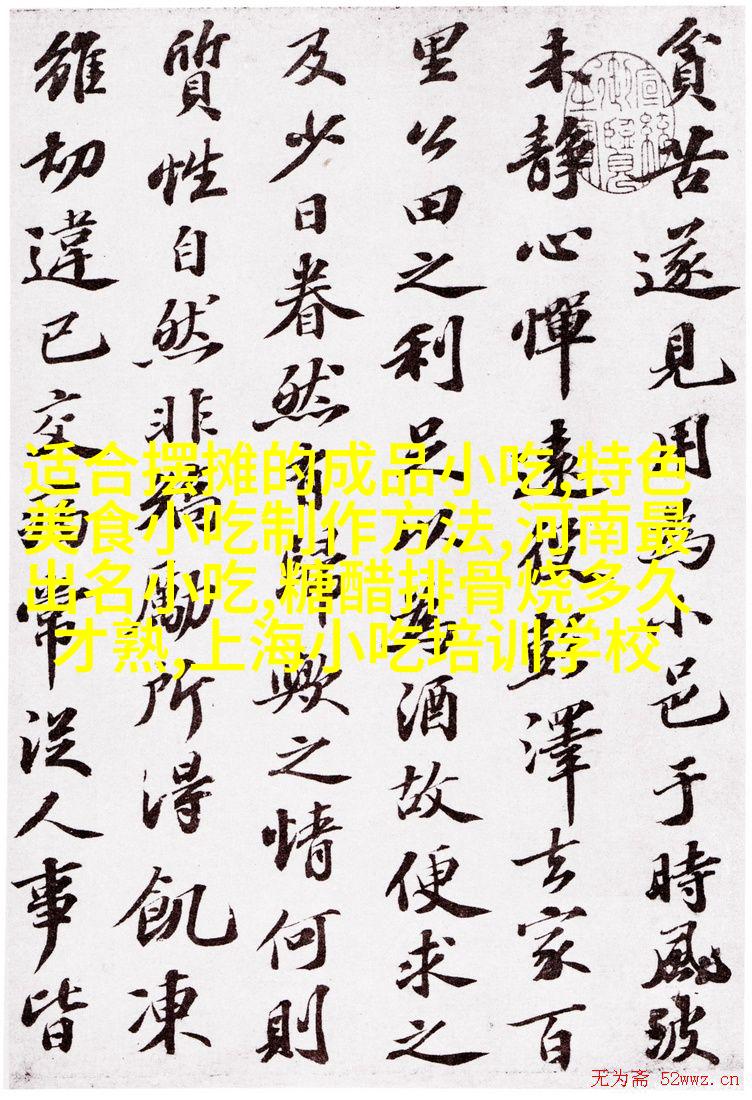 貧苦遂見用為小邑于時風波
未靜心憚遠役彭澤去家百
里公田之利足以為酒故便求之
及少日眷然有歸歟之情何則
質性自然非矯勵所得飢凍
雖切違己交病常從人事皆
适合摆摊的成品小吃,特色
美食小吃制作方法,河南最
出名小吃,糖醋排骨烧多久
才熟,上海小吃培训学校
无为斋 52wwz.cn